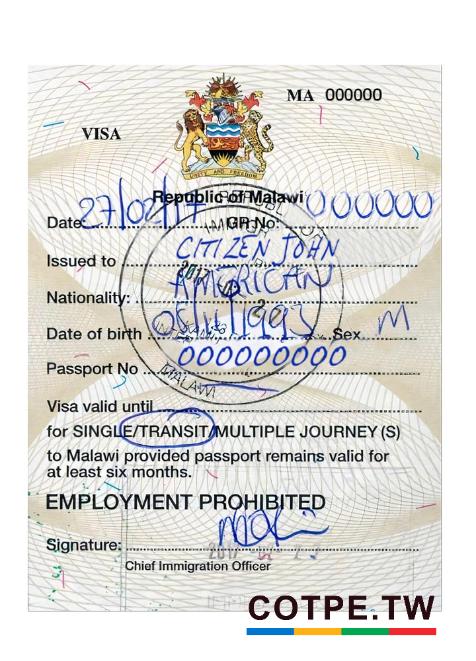 MA 000000
VISA
UNITY AND FREEDOM
Republic of Malawi
Date 27/02/17 GR No. 000000
Issued to CITIZEN JOHN
Nationality: AMERICAN
Date of birth 05/11/1993 Sex M
Passport No 000000000
Visa valid until
for SINGLE/TRANSIT/MULTIPLE JOURNEY (S)
to Malawi provided passport remains valid for
at least six months.
EMPLOYMENT PROHIBITED
Signature:
Chief Immigration Officer
MALAWI
COTPE.TW